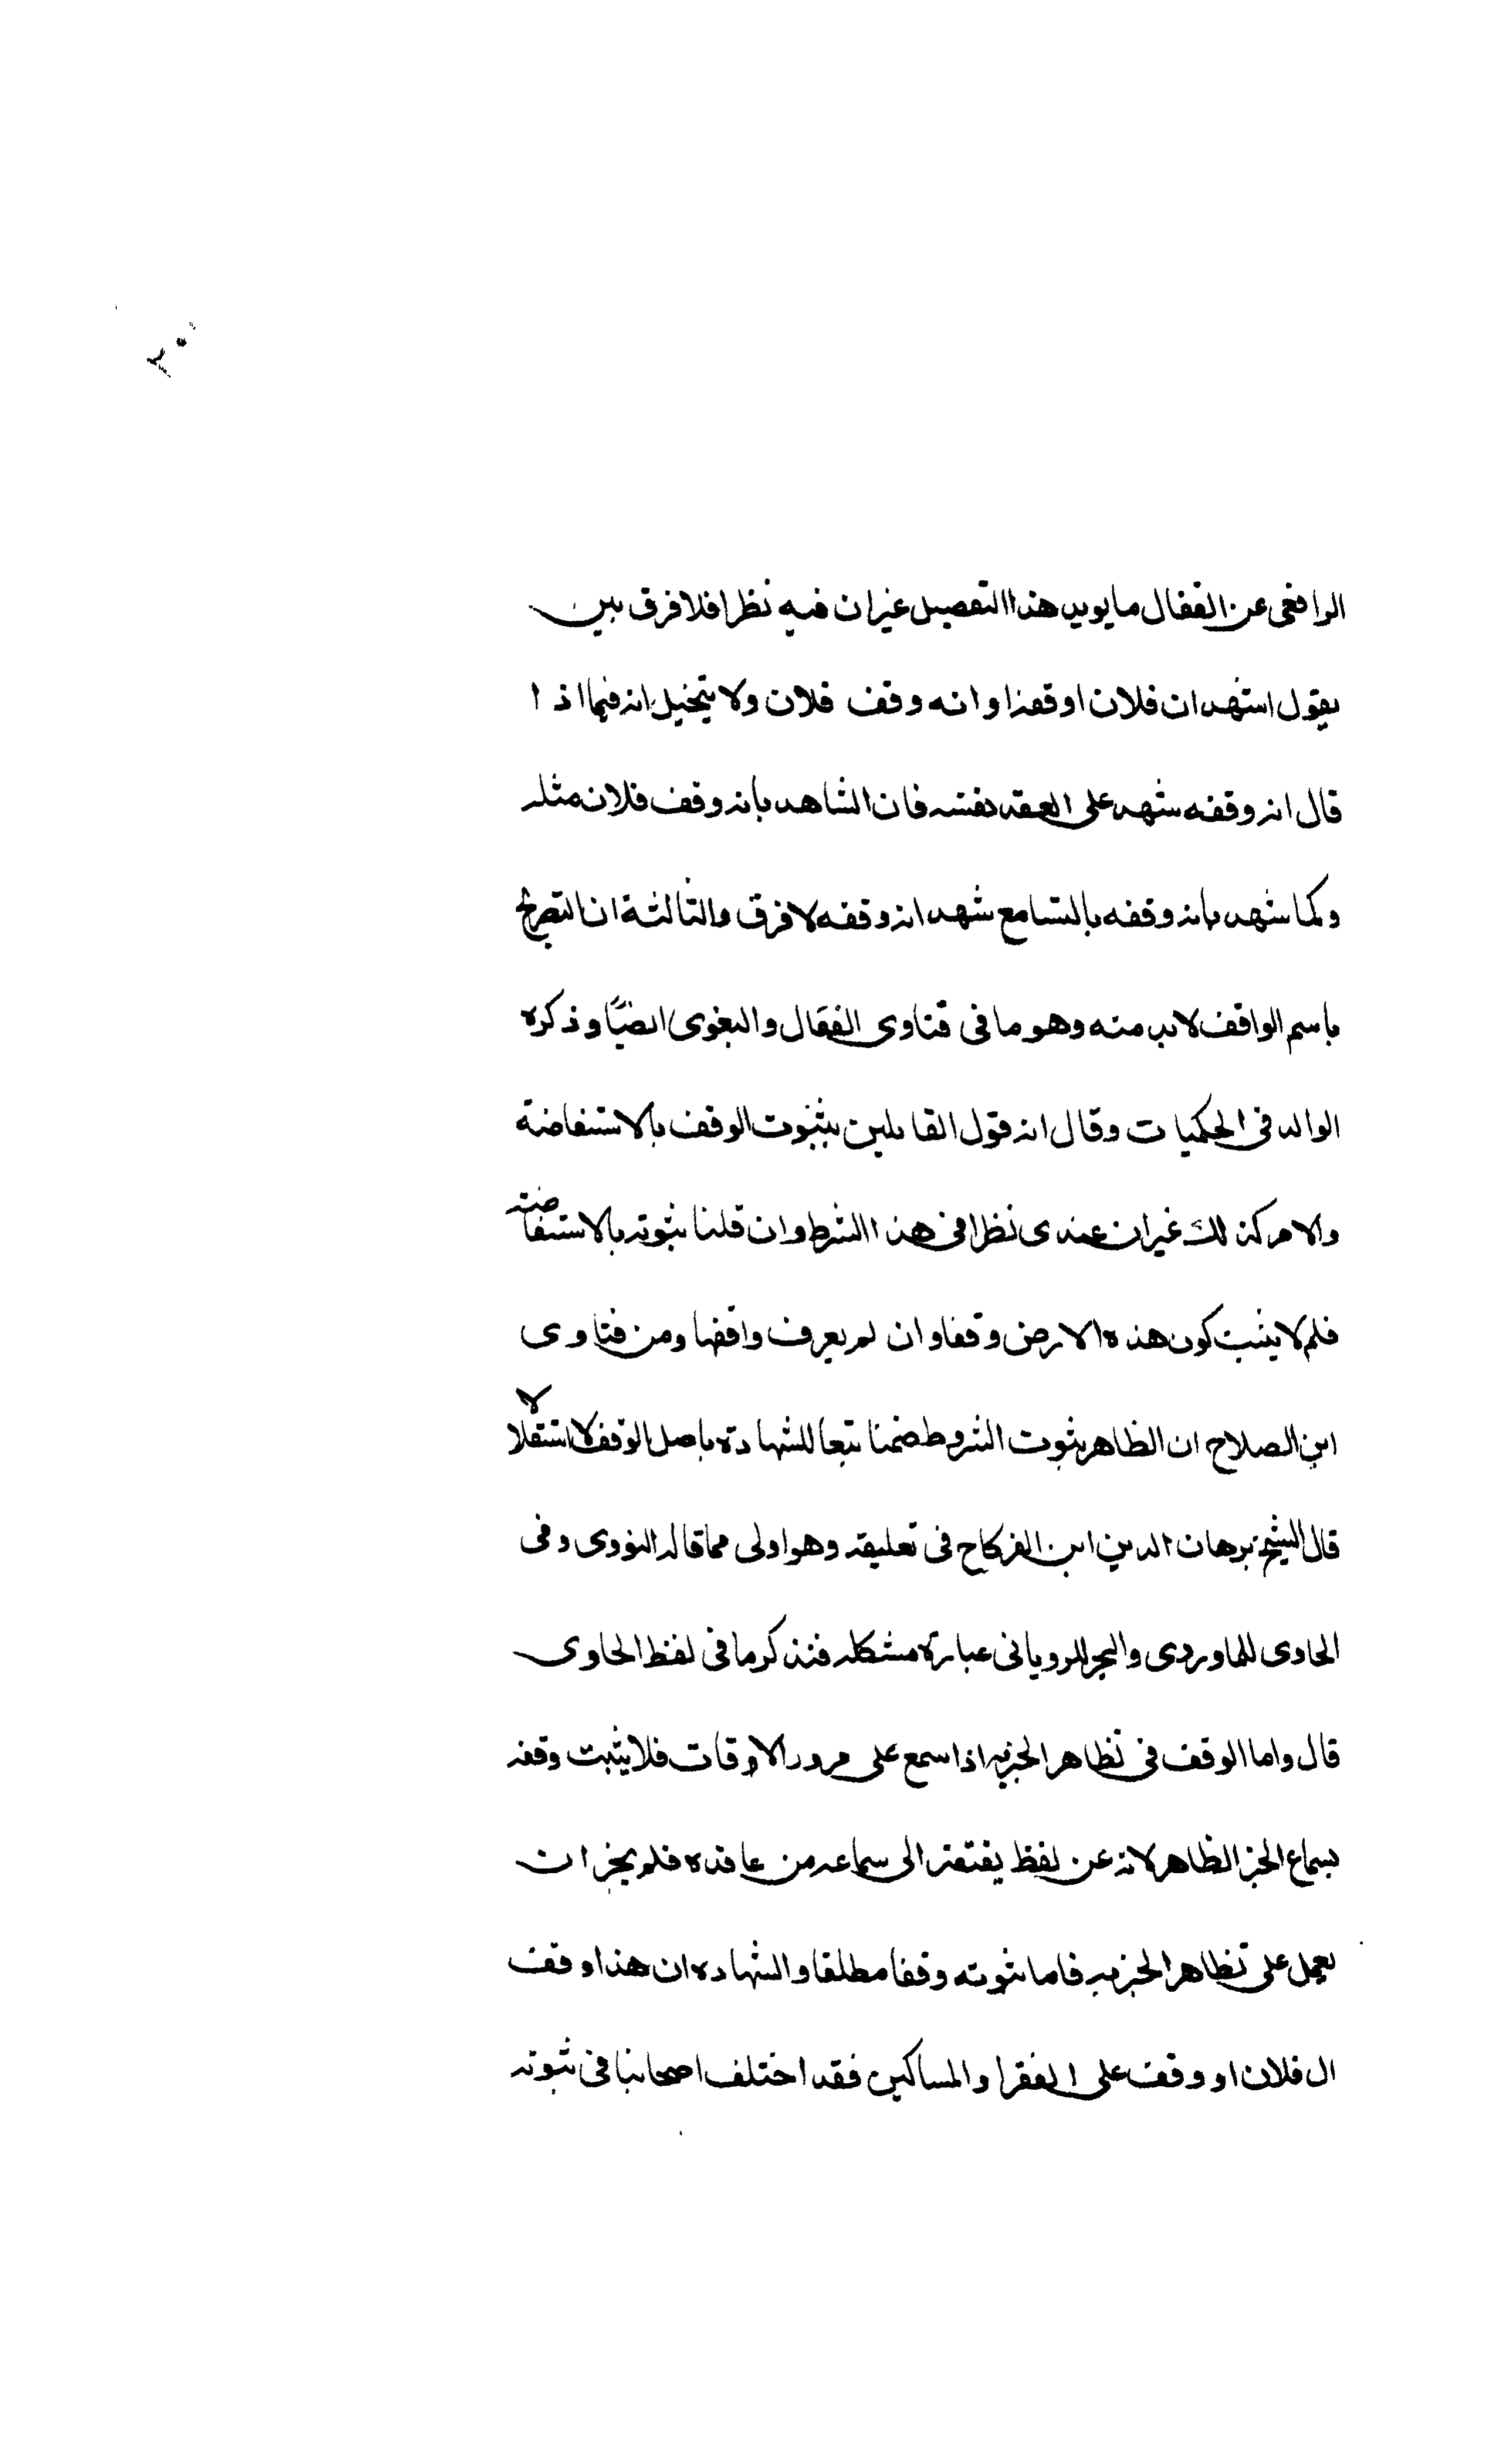 الرافعى عن القفال ما يويد هذا التفصيل غير ان فيه نظرا فلا فرق بين
يقول اشهد ان فلان اوقفه او انه وقف فلان ولا يتخيل انه فيما اذا
قال انه وقفه شهد على العقد نفسه فان الشاهد بانه وقف فلان مثله
وكما شهد بانه وقفه بالتسامع شهد انه وقفه لا فرق والثالثة ان التصريح
باسم الواقف لابد منه وهو ما فى فتاوى القفال والبغوى ايضًا وذكره
الوالد فى الحكميات وقال انه قول القايلين بثبوت الوقف بالاستفاضة
والامر كذلك غير ان عندى نظرا فى هذا الشرط وان قلنا ثبوته بالاستفاضته
فلم لا يثبت كون هذه الارض وقفا وان لم يعرف واقفها ومن فتاوى
ابن الصلاح ان الظاهر ثبوت الشروط ضمنا تبعا للشهادة باصل الوقف لا استقلالا
قال الشيخ برهان الدين ابن الفركاح فى تعليقه وهو اولى مما قاله النووى وفى
الحاوى للماوردى والبحر للرويانى عبارة مشكله فنذكر ما فى لفظ الحاوى
قال واما الوقف فى تظاهر الخبر به اذا سمع على مرور الاوقات فلا يثبت وقفه
بسماع الخبر الظاهر لانه عن لفظ يفتقر الى سماعه من عاقده فلم يجز ان
يعمل على تظاهر الخبر به فاما ثبوته وقفا مطلقا والشهاده ان هذا وقف
ال فلان او وقف على الفقرا والمساكين فقد اختلف اصحابنا فى ثبوته